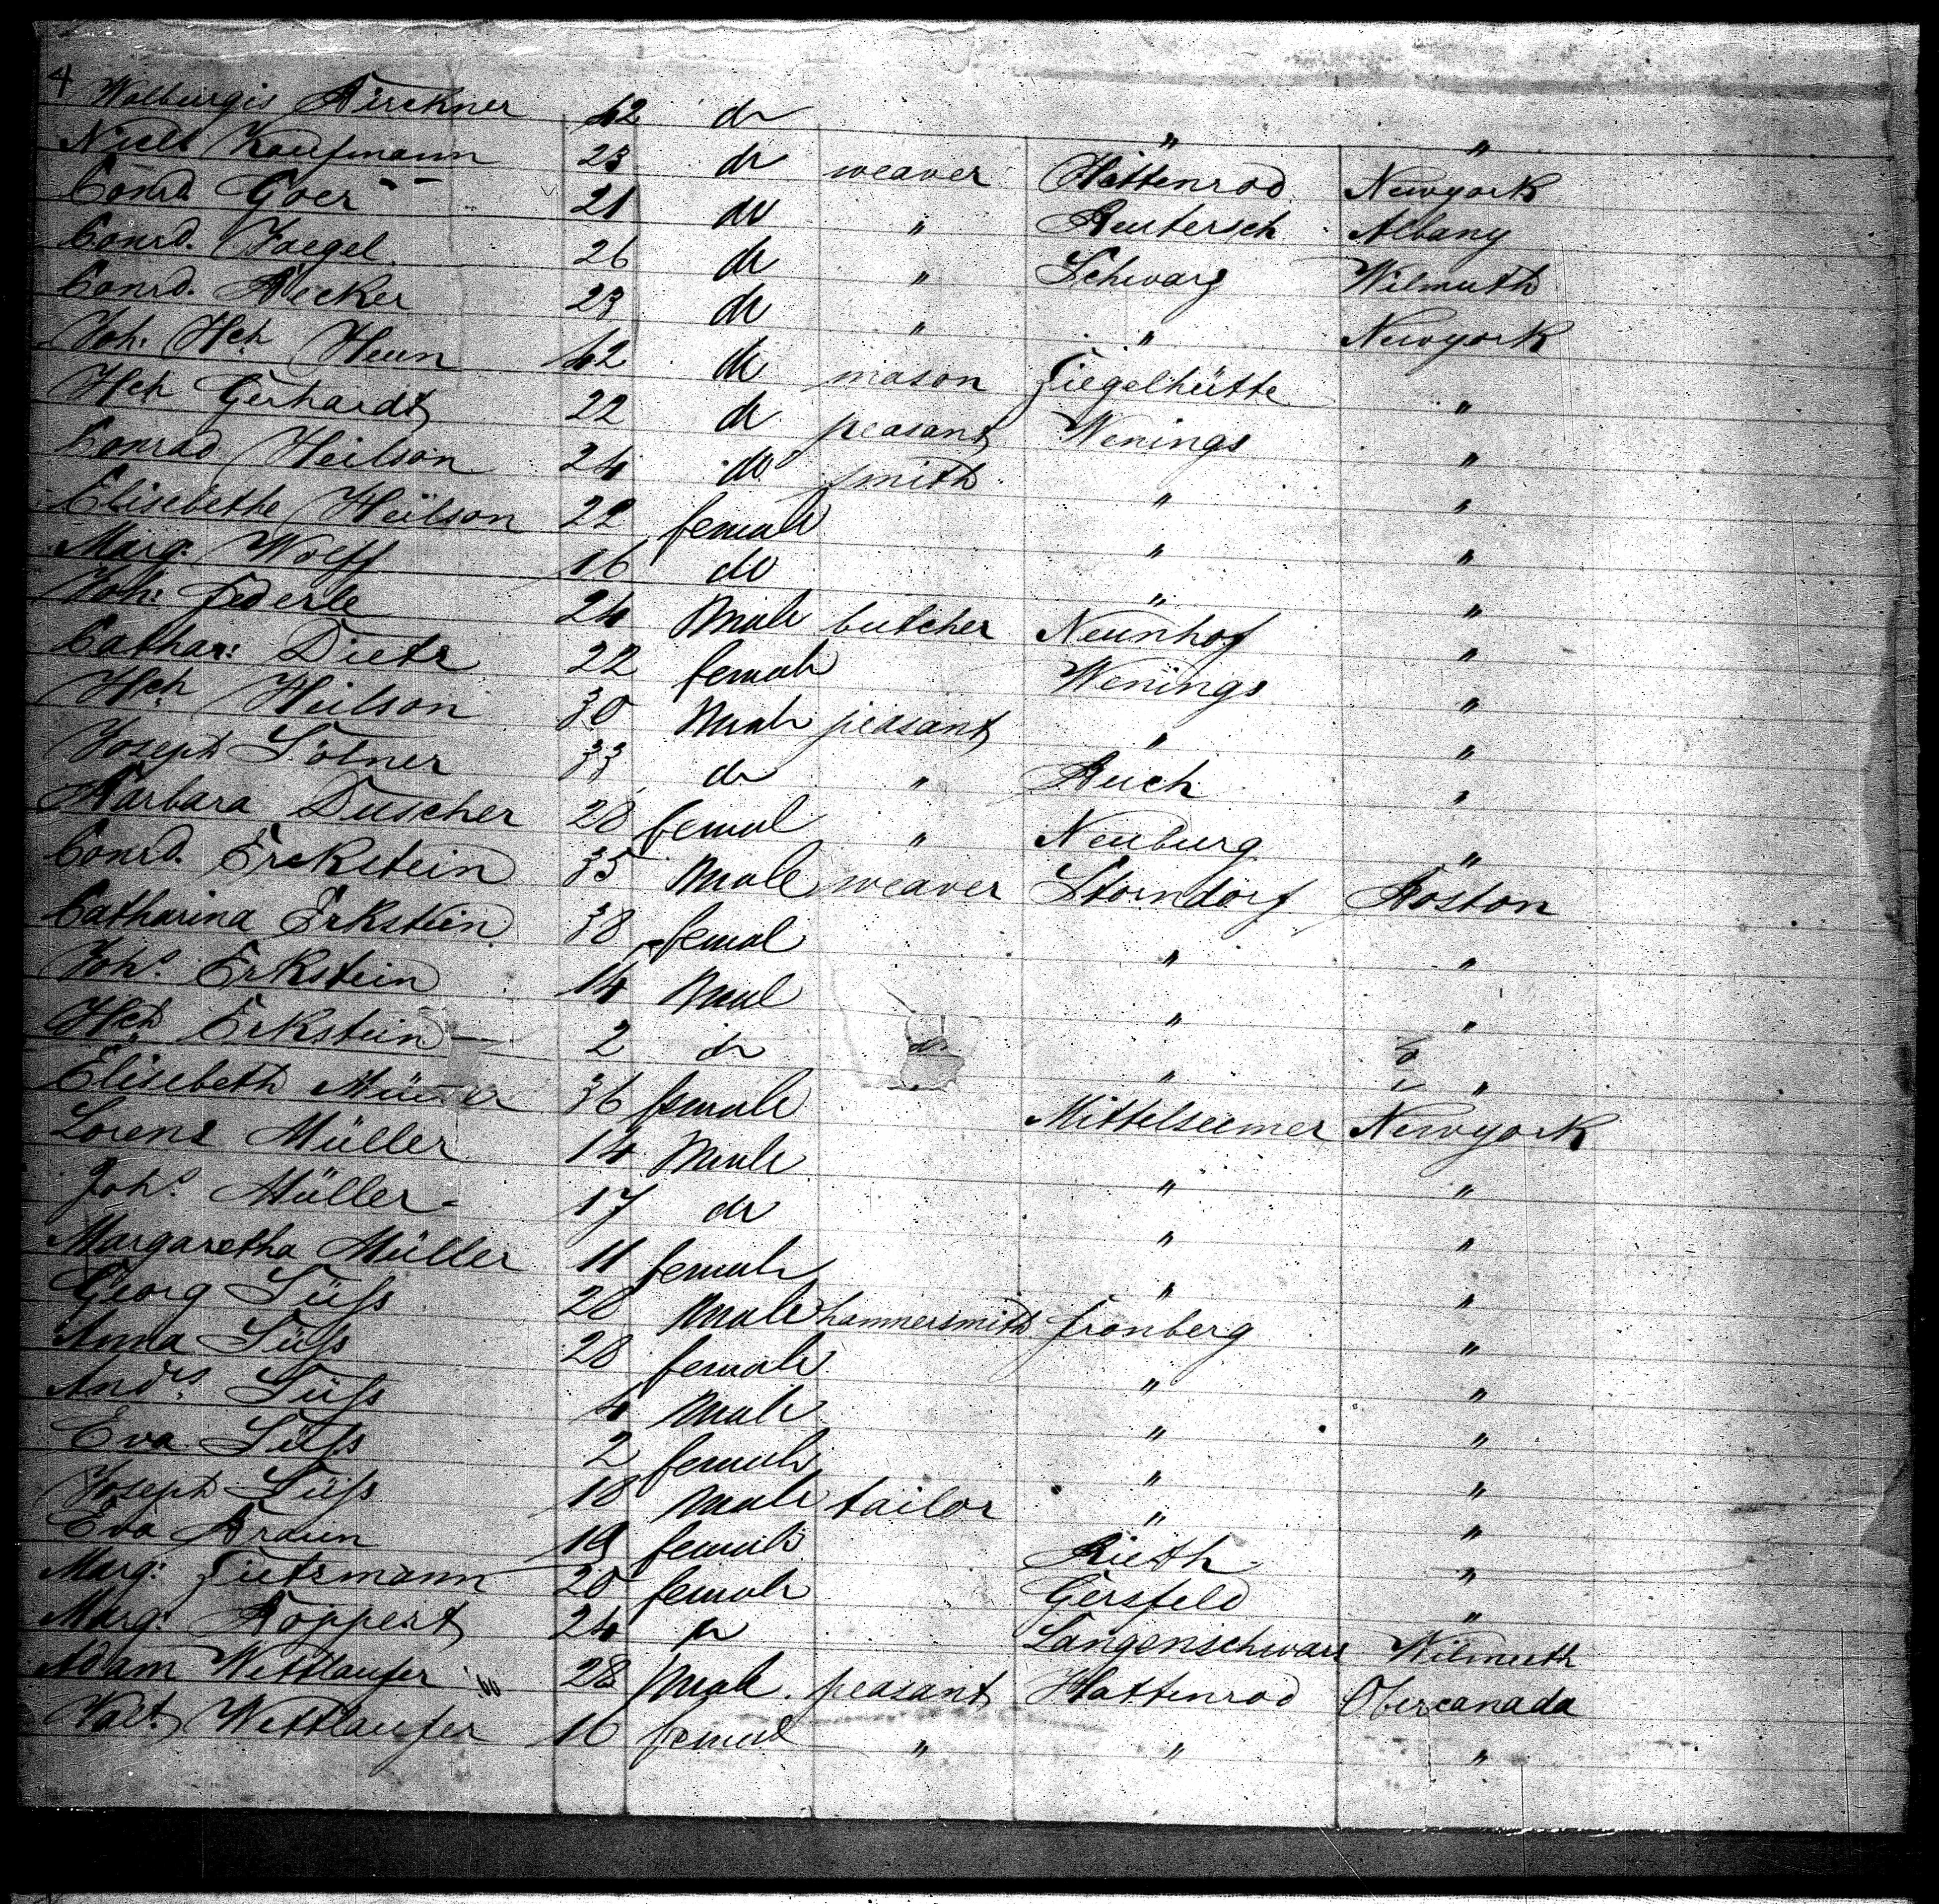 4
Walburgis Kirckner 42 do " "
Niell Kaufmann 23 do weaver Hattenrod Newyork
Conrd. Goer 21 do " Reutersch Albany
Conrd. Jaegel 26 do " Schwarz Wilmuth
Conrd. Becker 23 do " " Newyork
Joh. Hch Heun 42 do mason Ziegelhütte "
Hch Gerhardt 22 do peasant Wenings "
Conrad Heilson 24 do smith " "
Elisebethe Heilson 22 female " "
Marg: Wolff 16 do " "
Joh: Federle 24 Male butcher Neunhof "
Cathar: Dietz 22 female Wenings "
Hch Heilson 30 Male peasant " "
Joseph Tölner 33 do " Reich "
Barbara Duscher 28 femal " Neuburg "
Conrd. Erckstein 35 Male weaver Storndorf Boston
Catharina Erkstein 38 femal " "
Johs. Erkstein 14 Mal " "
Hch Erkstein 2 do " "
Elisebeth Müller 36 female Mittelseemer Newyork
Lorenz Müller 14 Male " "
Johs. Müller 17 do " "
Margaretha Müller 11 female " "
Georg Süss 28 Male hammersmith Fronberg "
Anna Süss 28 female " "
Andrs. Süss 4 Male " "
Eva Süss 2 female " "
Joseph Süss 18 Male tailor " "
Eva Braun 19 female Rieth "
Marg: Zietzmann 20 female Gersfeld "
Marg: Koppert 24 do Langenschwarz Wilmuth
Adam Wettlaufer 28 Male peasant Hattenrod Obercanada
Wettlaufer 16 femal " " "